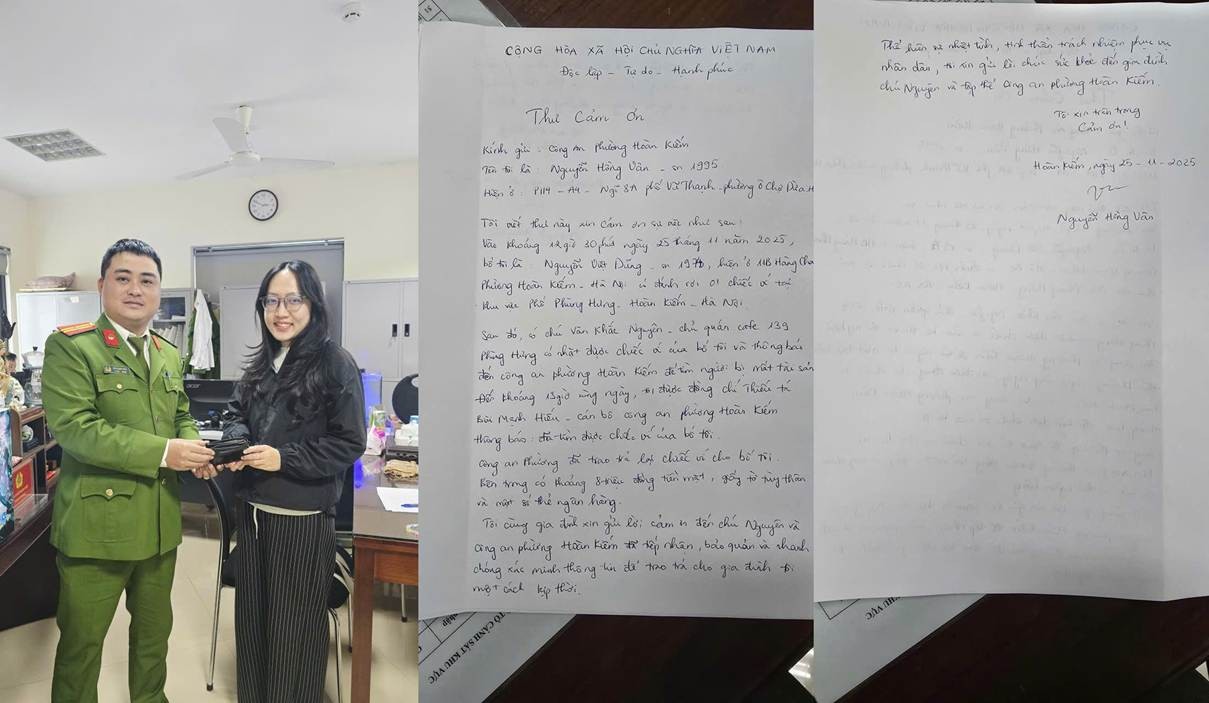 CỘNG HÒA XÃ HỘI CHỦ NGHĨA VIỆT NAM
Độc lập - Tự do - Hạnh phúc
Thư Cảm ơn
Kính gửi : Công An Phường Hoàn Kiếm
Tên tôi là : Nguyễn Hồng Vân - sn 1995
Hiện ở : P114 - A4 - Ngõ 8A phố Vũ Thạnh - phường Ô Chợ Dừa - H
Tôi viết thư này xin cảm ơn sự việc như sau :
Vào khoảng 12 giờ 30 phút ngày 25 tháng 11 năm 2025,
bố tôi là : Nguyễn Việt Dũng - sn 1970, hiện ở 11B Hàng Chá
Phường Hoàn Kiếm - Hà Nội có đánh rơi 01 chiếc ví tại
khu vực Phố Phùng Hưng - Hoàn Kiếm - Hà Nội.
Sau đó, có chú Văn Khắc Nguyên - chủ quán cafe 139
Phùng Hưng có nhặt được chiếc ví của bố tôi và thông báo
đến công an phường Hoàn Kiếm để tìm người bị mất tài sản
Đến khoảng 13 giờ cùng ngày, tôi được đồng chí Thiếu tá
Bùi Mạnh Hiếu - cán bộ công an phường Hoàn Kiếm
thông báo : đã tìm được chiếc ví của bố tôi.
Công an Phường đã trao trả lại chiếc ví cho bố tôi.
Bên trong có khoảng 8 triệu đồng tiền mặt, giấy tờ tùy thân
và một số thẻ ngân hàng.
Tôi cùng gia đình xin gửi lời cảm ơn đến chú Nguyên và
công an phường Hoàn Kiếm đã tiếp nhận, bảo quản và nhanh
chóng xác minh thông tin để trao trả cho gia đình tôi
một cách kịp thời.
Thể hiện sự nhiệt tình, tinh thần trách nhiệm phục vụ
nhân dân, tôi xin gửi lời chúc sức khỏe đến gia đình
chú Nguyên và tập thể công an phường Hoàn Kiếm.
Tôi xin trân trọng
Cảm ơn!
Hoàn Kiếm, ngày 25 - 11 - 2025
Nguyễn Hồng Vân
TỔ CẢNH SÁT KHU VỰC
KHU VỰC
acer